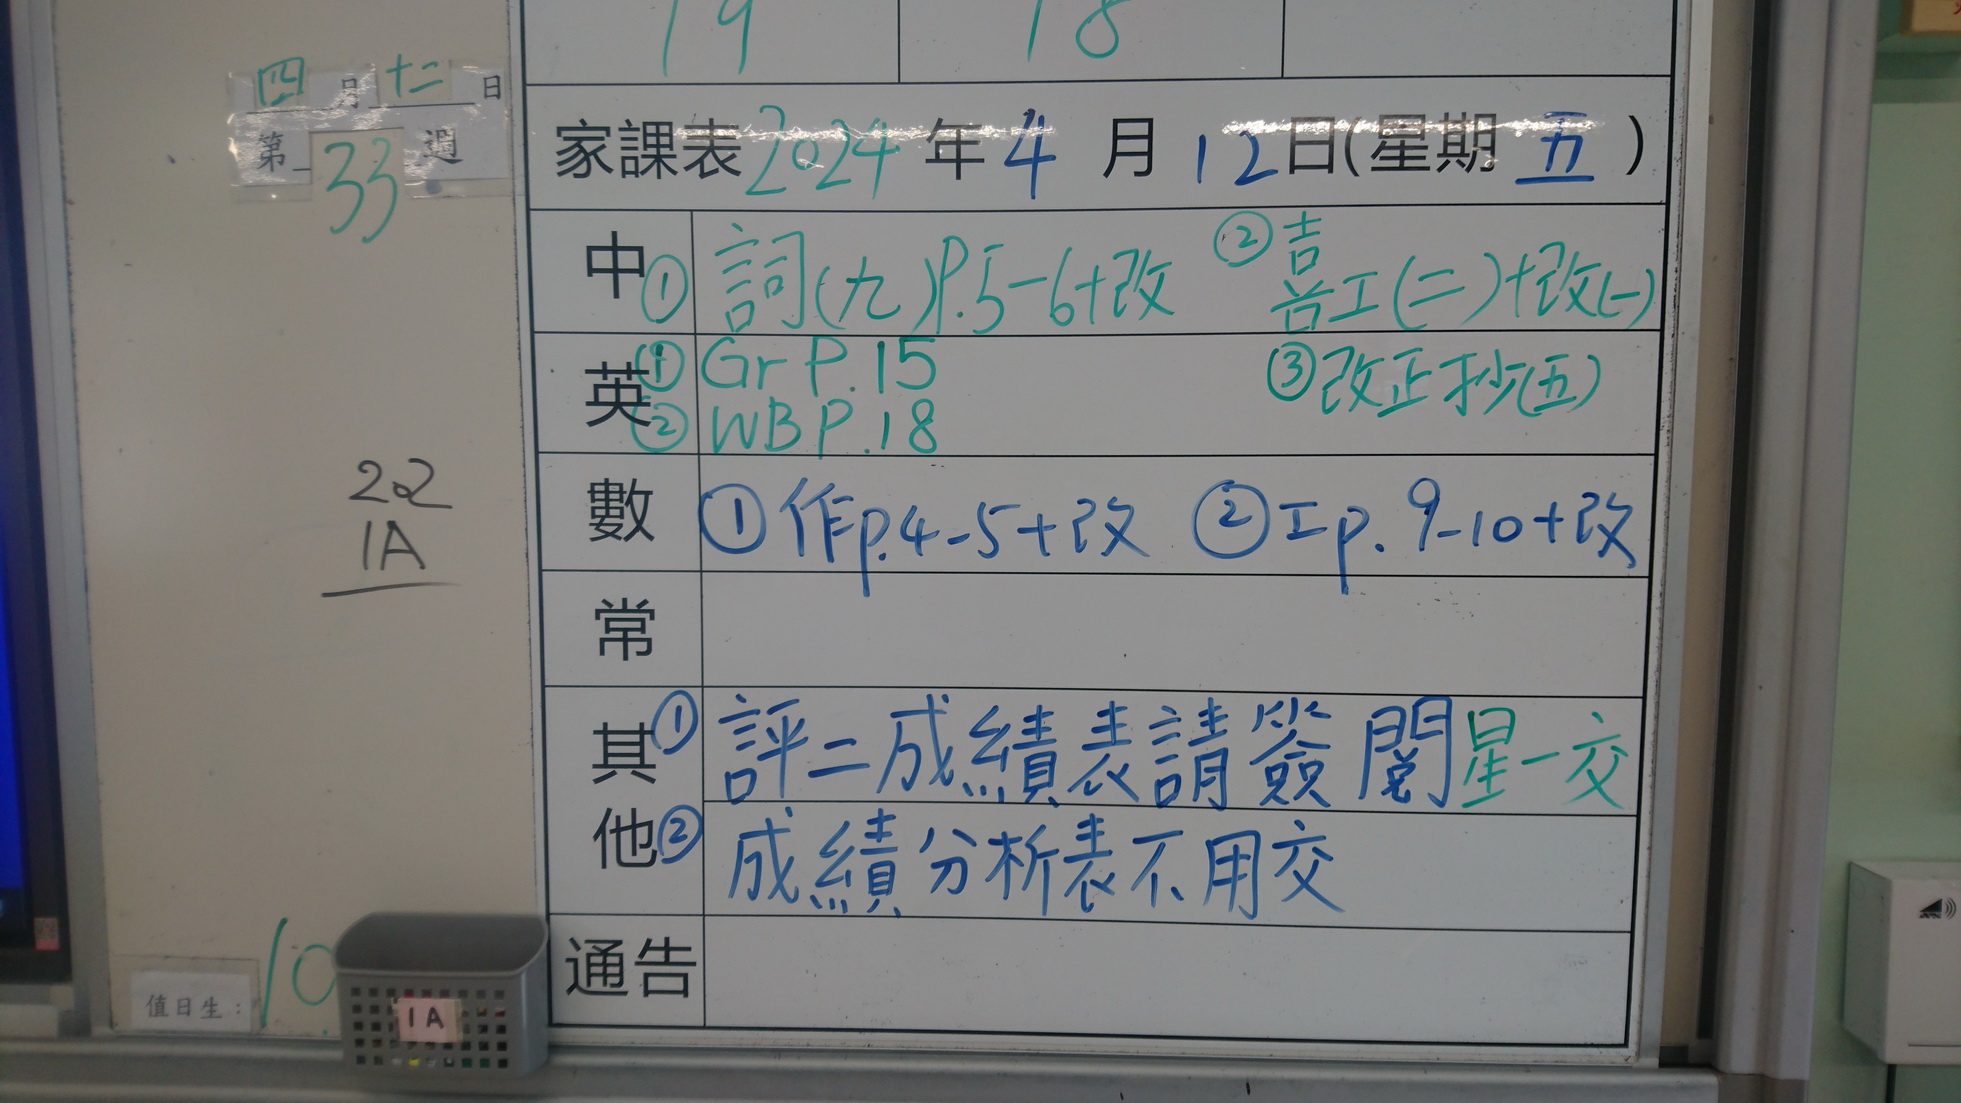 19 18
四月十二日
第33週
家課表2024年4月12日(星期五)
中 ① 詞(九)P.5-6+改 ② 喜工(二)+改(一)
③ 改正抄(五)
英 ① Gr P.15
② WB P.18
數 ① 作p.4-5+改 ② 工p.9-10+改
常
其他 ① 評二成績表請簽閱星一交
② 成績分析表不用交
通告
22
1A
值日生:10
1A